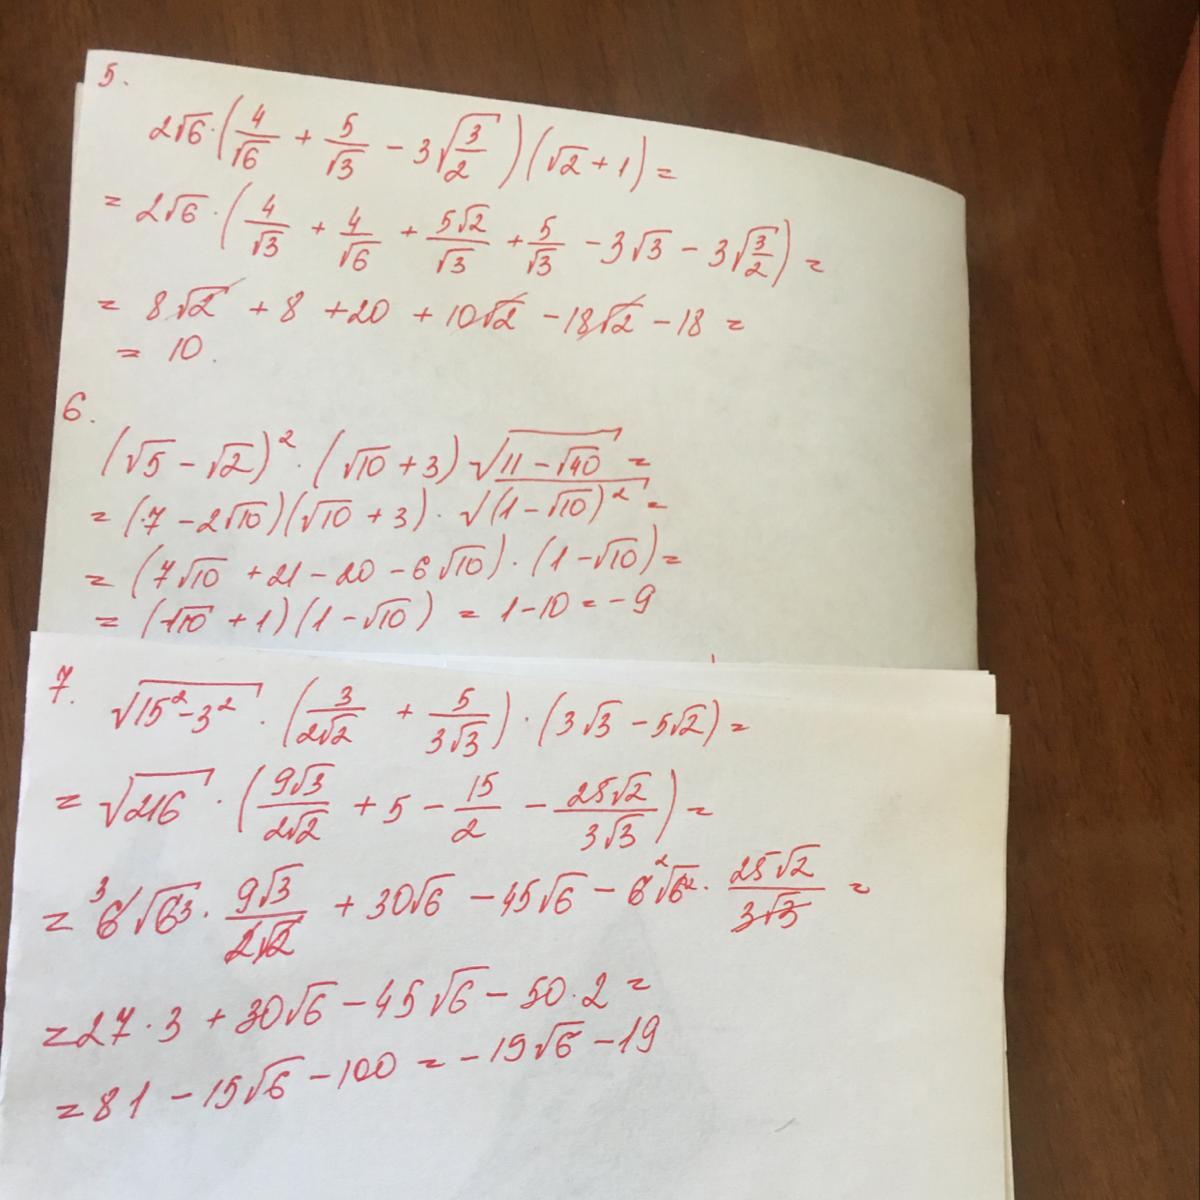 5.
2√6·(4/√6 + 5/√3 − 3√(3/2))(√2 + 1) =
= 2√6·(4/√3 + 4/√6 + 5√2/√3 + 5/√3 − 3√3 − 3√(3/2)) =
= 8√2 + 8 + 20 + 10√2 − 18√2 − 18 =
= 10.
6.
(√5 − √2)²·(√10 + 3)√(11 − √40) =
= (7 − 2√10)(√10 + 3)·√((1 − √10)²) =
= (7√10 + 21 − 20 − 6√10)·(1 − √10) =
= (√10 + 1)(1 − √10) = 1 − 10 = −9
7. √(15² − 3²)·(3/(2√2) + 5/(3√3))·(3√3 − 5√2) =
= √216·(9√3/(2√2) + 5 − 15/2 − 25√2/(3√3)) =
= 6√6·9√3/(2√2) + 30√6 − 45√6 − 6√6·25√2/(3√3) =
= 27·3 + 30√6 − 45√6 − 50·2 =
= 81 − 15√6 − 100 = −15√6 − 19